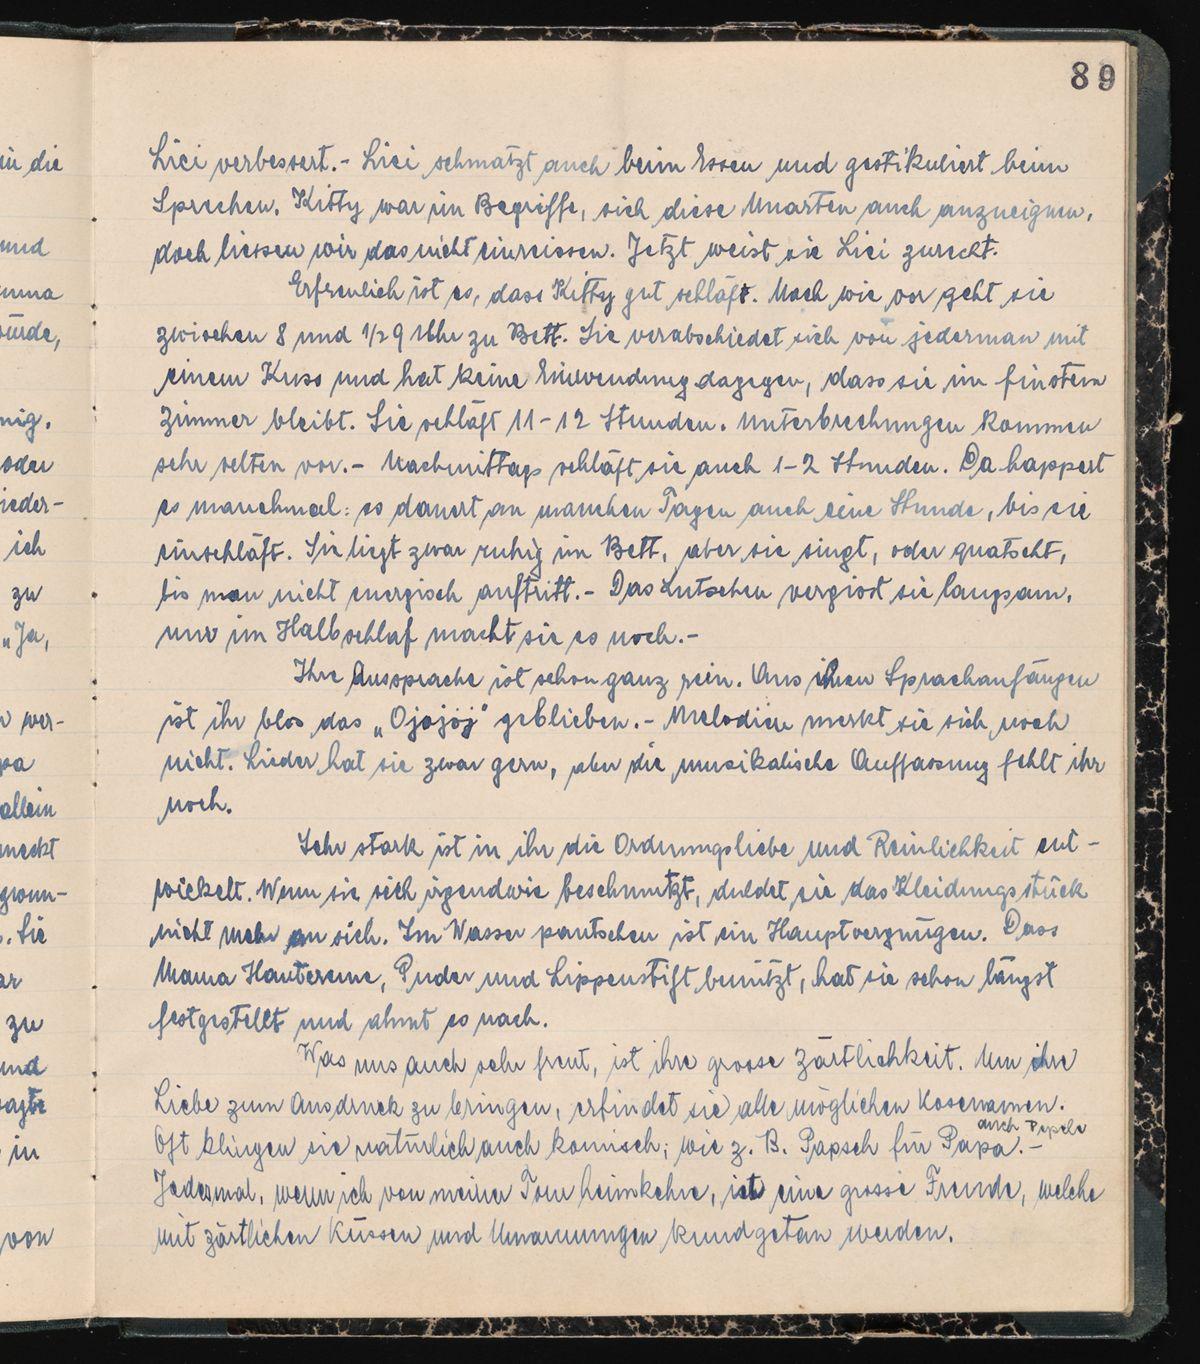 89
Lici verbessert.- Lici schmatzt auch beim Essen und gestikuliert beim
Sprechen. Kitty war im Begriffe, sich diese Unarten auch anzueignen,
doch liessen wir das nicht einreissen. Jetzt weist sie Lici zurecht.
Erfreulich ist es, dass Kitty gut schläft. Nach wie vor geht sie
zwischen 8 und 1/2 9 Uhr zu Bett. Sie verabschiedet sich von jederman mit
einem Kuss und hat keine Einwendung dagegen, dass sie im finstern
Zimmer bleibt. Sie schläft 11-12 Stunden. Unterbrechungen kommen
sehr selten vor.- Nachmittags schläft sie auch 1-2 Stunden. Da happert
es manchmal: es dauert an manchen Tagen auch eine Stunde, bis sie
einschläft. Sie liegt zwar ruhig im Bett, aber sie singt, oder quatscht,
bis man nicht energisch auftritt.- Das Lutschen vergisst sie langsam,
nur im Halbschlaf macht sie es noch.-
Ihre Aussprache ist schon ganz rein. Aus ihren Sprachanfängen
ist ihr blos das „Ojojoj" geblieben.- Melodien merkt sie sich noch
nicht. Lieder hat sie zwar gern, aber die musikalische Auffassung fehlt ihr
noch.
Sehr stark ist in ihr die Ordnungsliebe und Reinlichkeit ent-
wickelt. Wenn sie sich irgendwie beschmutzt, duldet sie das Kleidungsstück
nicht mehr an sich. Im Wasser pantschen ist ein Hauptvergnügen. Dass
Mama Hautcreme, Puder und Lippenstift benützt, hat sie schon längst
festgestellt und ahmt es nach.
Was uns auch sehr freut, ist ihre grosse Zärtlichkeit. Um ihre
Liebe zum Ausdruck zu bringen, erfindet sie alle möglichen Kosenamen.
Oft klingen sie natürlich auch komisch; wie z. B. Papsch für Papa.-
auch
Jedesmal, wenn ich von meiner Tour heimkehre, ist eine grosse Freude, welche
mit zärtlichen Küssen und Umarmungen kundgetan werden.
in die
und
mig.
oder
ieder-
ich
zu
„Ja,
r wer-
pa
allein
. Sie
ar
zu
und
sagte
in
von